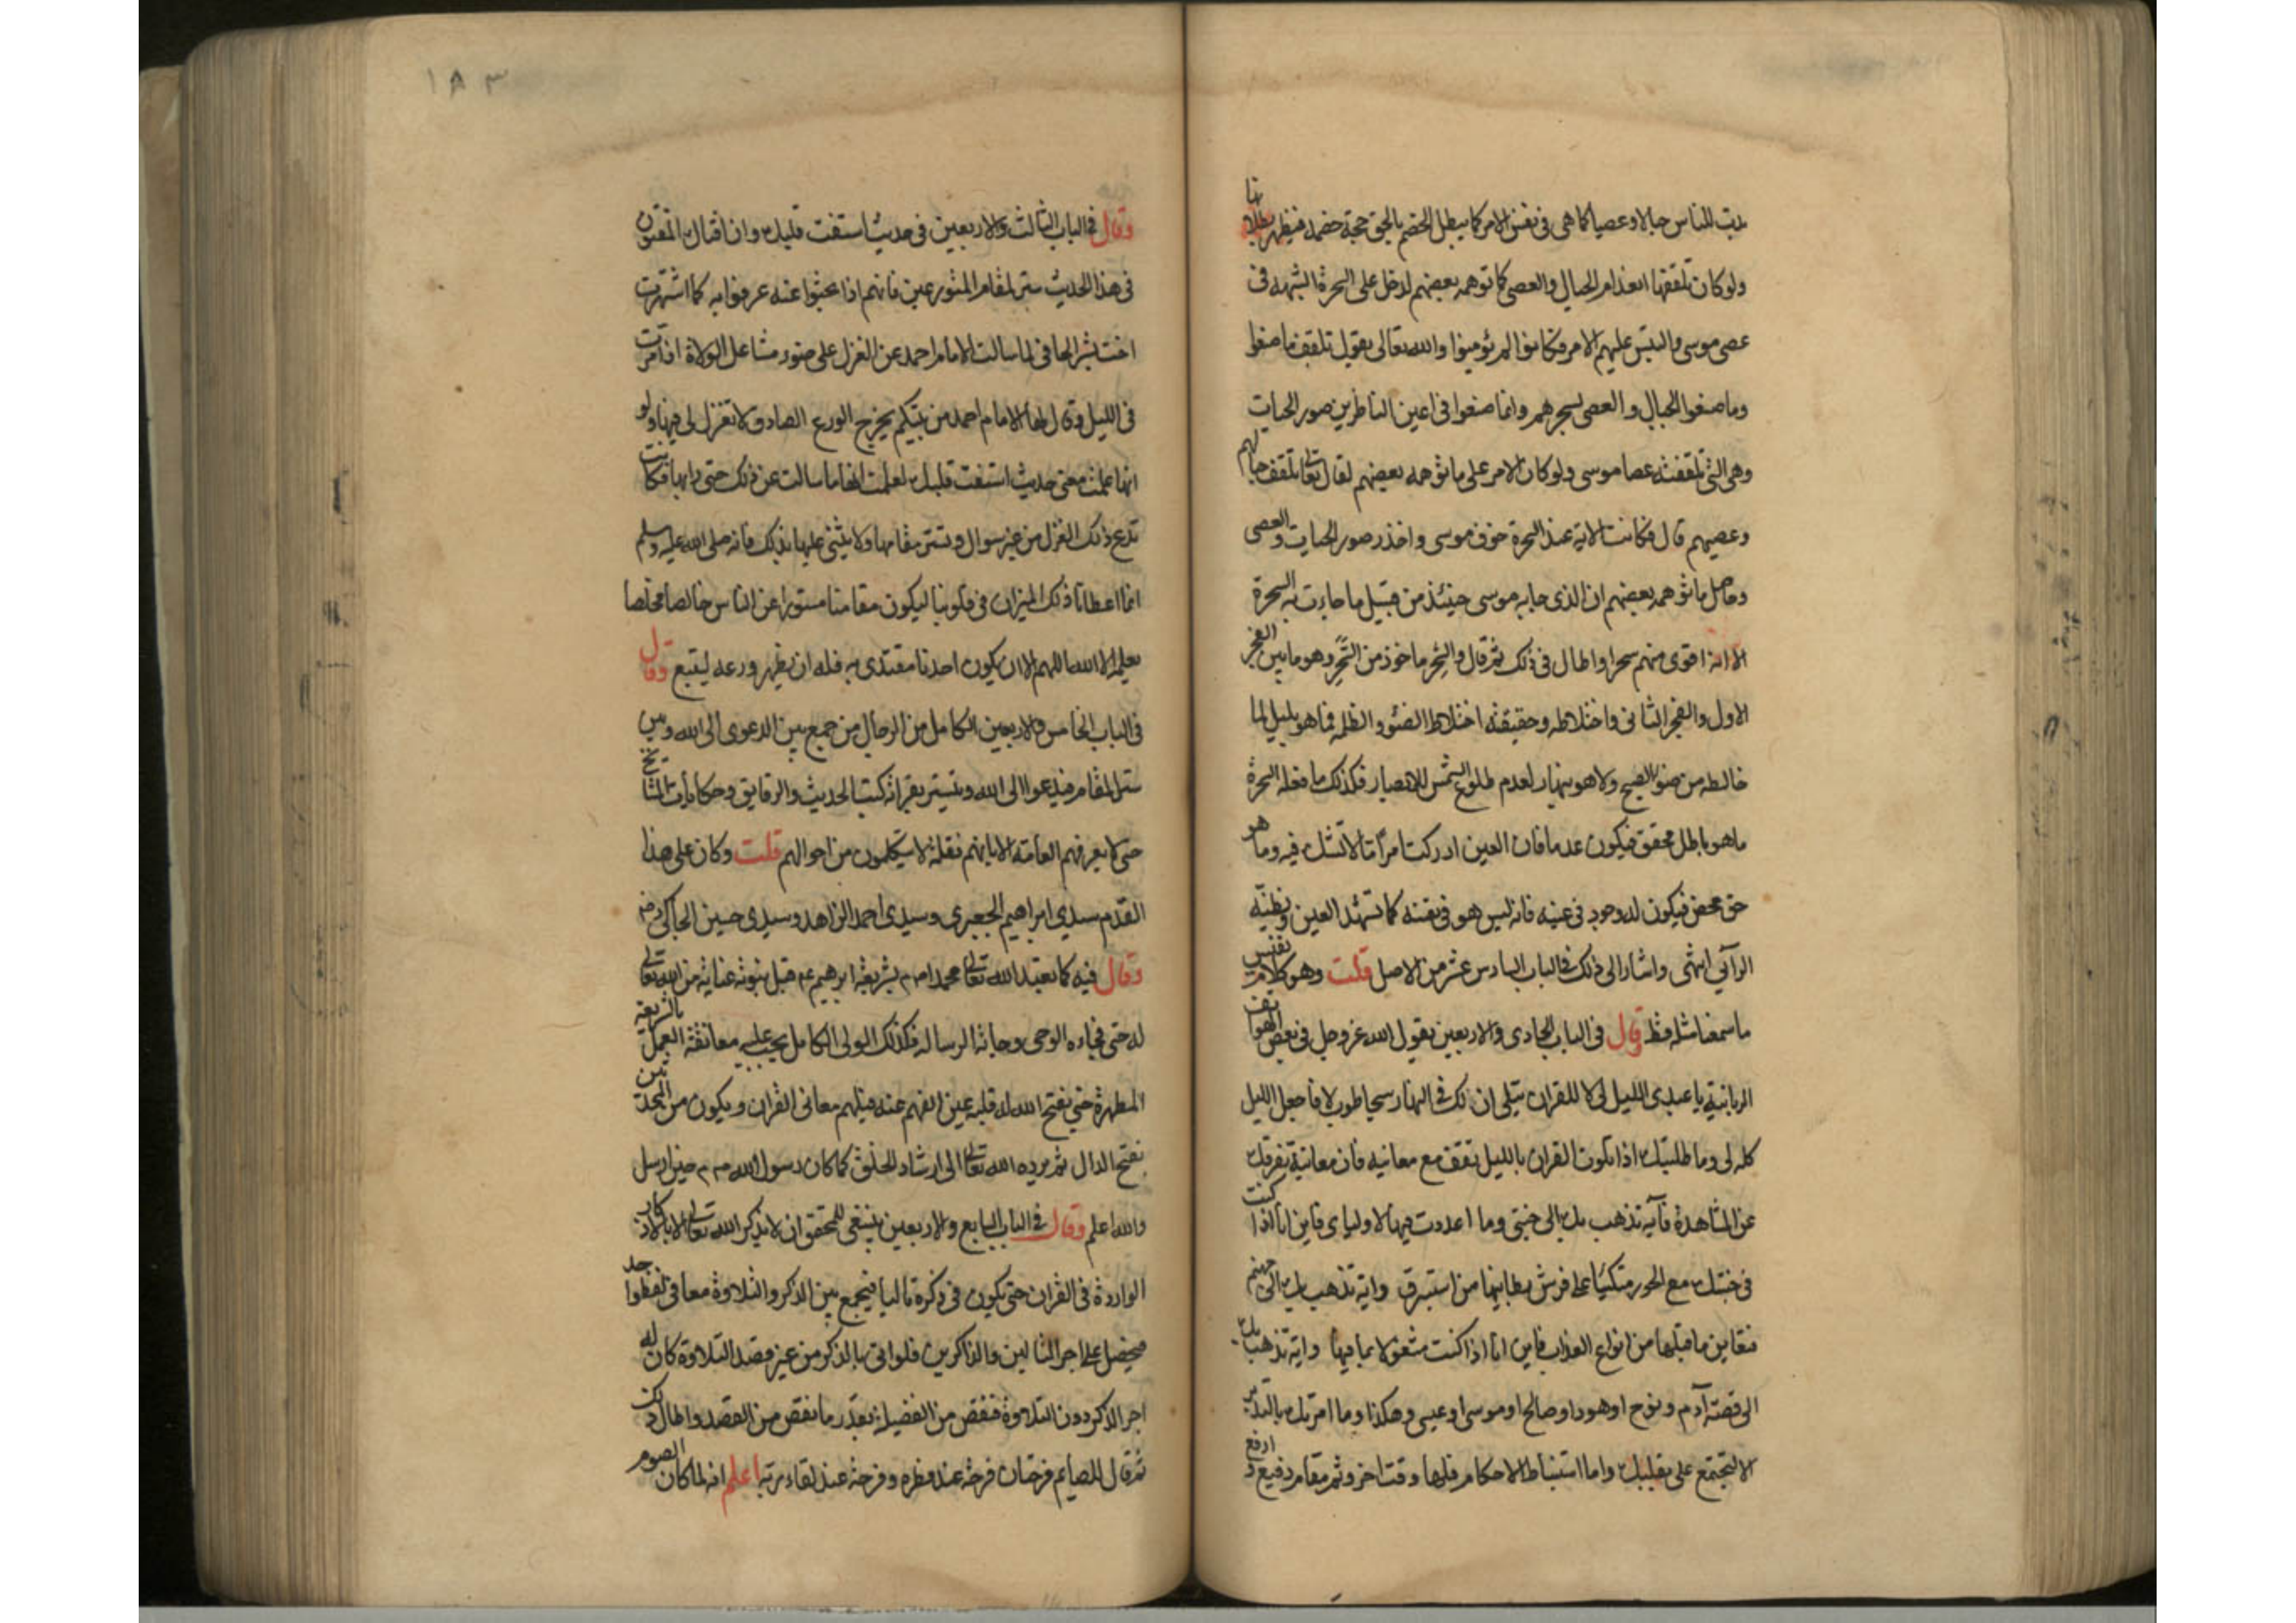 بدت للناس حبالا وعصيا كما هي في نفس الامر كما يبطل الخصم بالحق حجة خصمه فيظهر بطلانها
ولو كان تلقفها انعدام الحبال والعصي كما توهمه بعضهم لدخل على السحرة الشبهه في
عصى موسى والتبس عليهم الامر فكانوا لم يؤمنوا والله تعالى يقول تلقف ما صنعوا
وما صنعوا الحبال والعصى بسحرهم وانما صنعوا في اعين الناظرين صور الحيات
وهي التي تلقفته عصا موسى ولو كان الامر على ما توهمه بعضهم لقال تعالى تلقف حبالهم
وعصيهم قال فكانت الاية عند السحرة خوف موسى واخذ صور الحيات والعصى
وحاصل ما توهمه بعضهم ان الذي جابه موسى حينئذ من قبيل ماجاءت به السحرة
الا انه اقوى منهم سحرا واطال في ذلك ثم قال والسحر ماخوذ من السحر وهو ما بين الفجر
الاول والفجر الثاني واختلاطه وحقيقته اختلاط الضوء والظلمه فما هو بليل لما
خالطه من ضوء الصبح ولا هو بنهار لعدم طلوع الشمس للابصار فكذلك ما فعله السحرة
ماهو باطل محقق فيكون عدما فان العين ادركت امرًا ما لا تشك فيه وما هو
حق محض فيكون له وجود في عينه فانه ليس هو في نفسه كما تشهد العين ويظنّه
الرآئي انتهى واشار الى ذلك في الباب السادس عشر من الاصل قلت وهو كلام نفيس
ما سمعنا مثله قط وقال في الباب الحادى والاربعين يقول الله عز وجل في بعض الهواتف
الربانية يا عبدى الليل لي لا للقران يتلى ان لك في النهار سبحا طويلا فاجعل الليل
كله لى وما طلبتك اذا تلوت القران بالليل تقف مع معانيه فان معانيه تفرقك
عن المشاهدة فآية تذهب بك الى جنتى وما اعددت فيها لاوليا ى فاين انا اذا كنت
في جنتك مع الحور متكئا على فرش بطاينها من استبرق واية تذهب بك الى جهنم
فتعاين ما فيها من انواع العذاب فاين انا اذا كنت مشغولا بما فيها واية تذهب بك
الى قصة آدم ونوح اوهود او صالح او موسى او عيسى وهكذا وما امرتك بالتدبر
الا لتجتمع على بقلبك واما استنباط الاحكام فلها وقت اخر وثم مقام رفيع وارفع
١٨٣
وقال في الباب الثالث والاربعين في حديث استفت قلبك وان افتاك المفتون
في هذا الحديث ستر لمقام المتورعين فانهم اذا بحثوا عنه عرفوا به كما اشتهرت
اخت بشر الحافي لما سالت الامام احمد عن الغزل على ضوء مشاعل الولاة اذا مرت
في الليل وقال لها الامام احمد من بيتكم يخرج الورع الصادق لا تغزل لى فيها ولو
انها علمت معنى حديث استفت قلبك لعلمت انها ما سالت عن ذلك حتى رابها فكانت
تدع ذلك الغزل من غير سوال وتستر مقامها ولا يثنى عليها بذلك فانه صلى الله عليه وسلم
انما اعطانا ذلك الميزان في قلوبنا ليكون مقامنا مستورا عن الناس خالصا مخلصا
يعلمه الا الله اللهم الا ان يكون احدنا مقتدى به فله ان يظهر ورعه ليتبع وقال
في الباب الخامس والاربعين الكامل من الرجال من جمع بين الدعوى الى الله وبين
ستر المقام فيدعوا الى الله ويتستر بقراة كتب الحديث والرقايق وحكايات المشايخ
حتى لا يعرفهم العامة الا بانهم نقلة لا يتكلمون من احوالهم قلت وكان على هذا
القدم سيدي ابراهيم الجعبرى وسيدى احمد الزاهد وسيدى حسين الجاكى رضـ
وقال فيه كما تعبد الله تعالى محمدا صم بشريعة ابرهيم عم قبل نبوته عناية من الله تعالى
له حتى فجاءه الوحى وجاته الرساله فكذلك الولى الكامل يجب عليه معانقة العمل بالشريعة
المطهرة حتى يفتح الله له قلبه عين الفهم عنه فيلهم معانى القران ويكون من المحدثين
بفتح الدال ثم يرده الله تعالى الى ارشاد الخلق كما كان رسول الله صم حين ارسل
والله اعلم وقال في الباب السابع والاربعين ينبغى للمحقق ان لا يذكر الله تعالى الا بالاذكار
الواردة في القران حتى يكون في ذكره تاليا فيجمع بين الذكر والتلاوة معا في لفظ واحد
فيحصل على اجر التالين والذاكرين فلو اتى بالذكر من غير قصد التلاوة كان له
اجر الذكر دون التلاوة فنقص من الفضيلة بقدر ما نقص من القصد واطال في ذلك
ثم قال للصايم فرحتان فرحة عند فطره وفرحة عند لقاء ربه اعلم انه لما كان الصوم